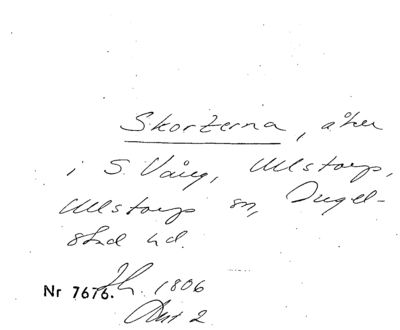 Skorterna, åker
i S. Vång, Ullstorp,
Ullstorps sn, Ingel-
stad hd.
Nr 7676. 1806
Akt 2